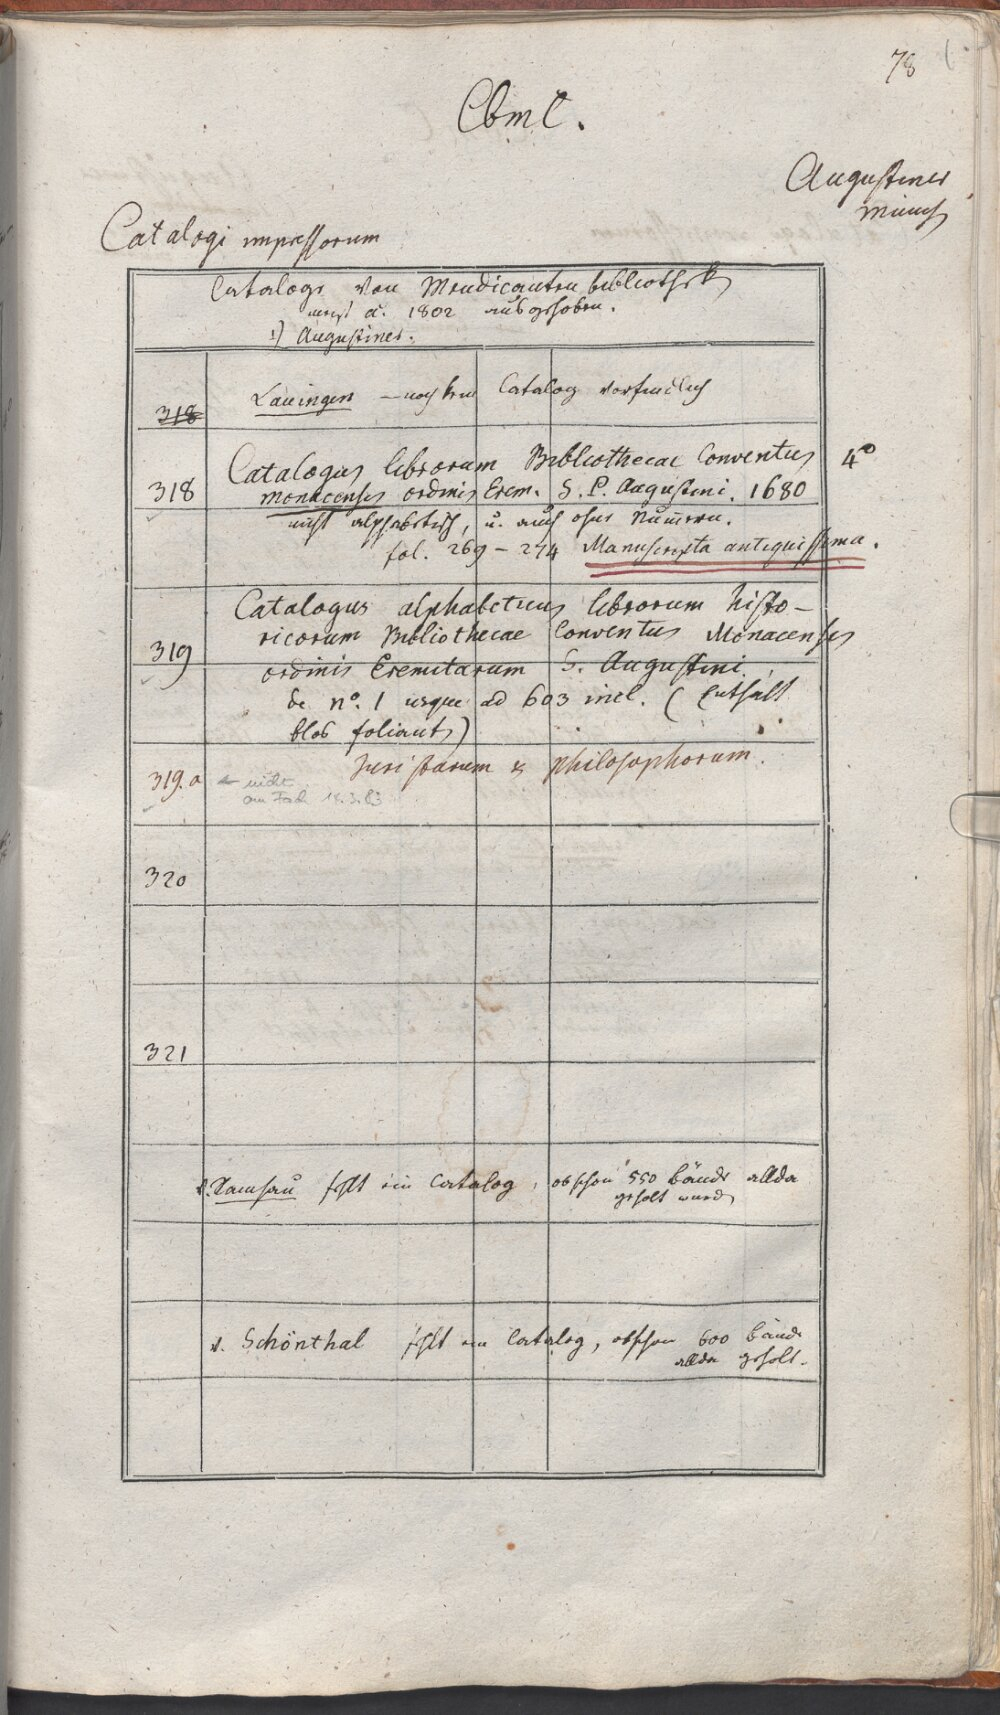 78
CbmC.
Augustiner
Münch
Catalogi impressorum
Cataloge von Mendicanten bibliothek
a. 1802 ausgehoben.
1) Augustiner.
318
Lauingen – noch kein Catalog vorfindlich
318
Catalogus librorum Bibliothecae Conventus 4°
monacensis ordinis Erem. S. P. Augustini. 1680
nicht alphabetisch, u. auch ohne Numern.
fol. 269 – 274 Manuscripta antiquissima.
319
Catalogus alphabeticus librorum histo-
ricorum Bibliothecae Conventus Monacensis
ordinis Eremitarum S. Augustini
de n°. 1 usque ad 603 incl. (enthält
blos folianten)
319.a
Juristarum & philosophorum.
nicht
am Fach 14.3.83
320
321
Ramsau fehlt ein Catalog, obschon 550 Bände allda
geholt wurden
Schönthal fehlt ein Catalog, obschon 600 bände
allda geholt.